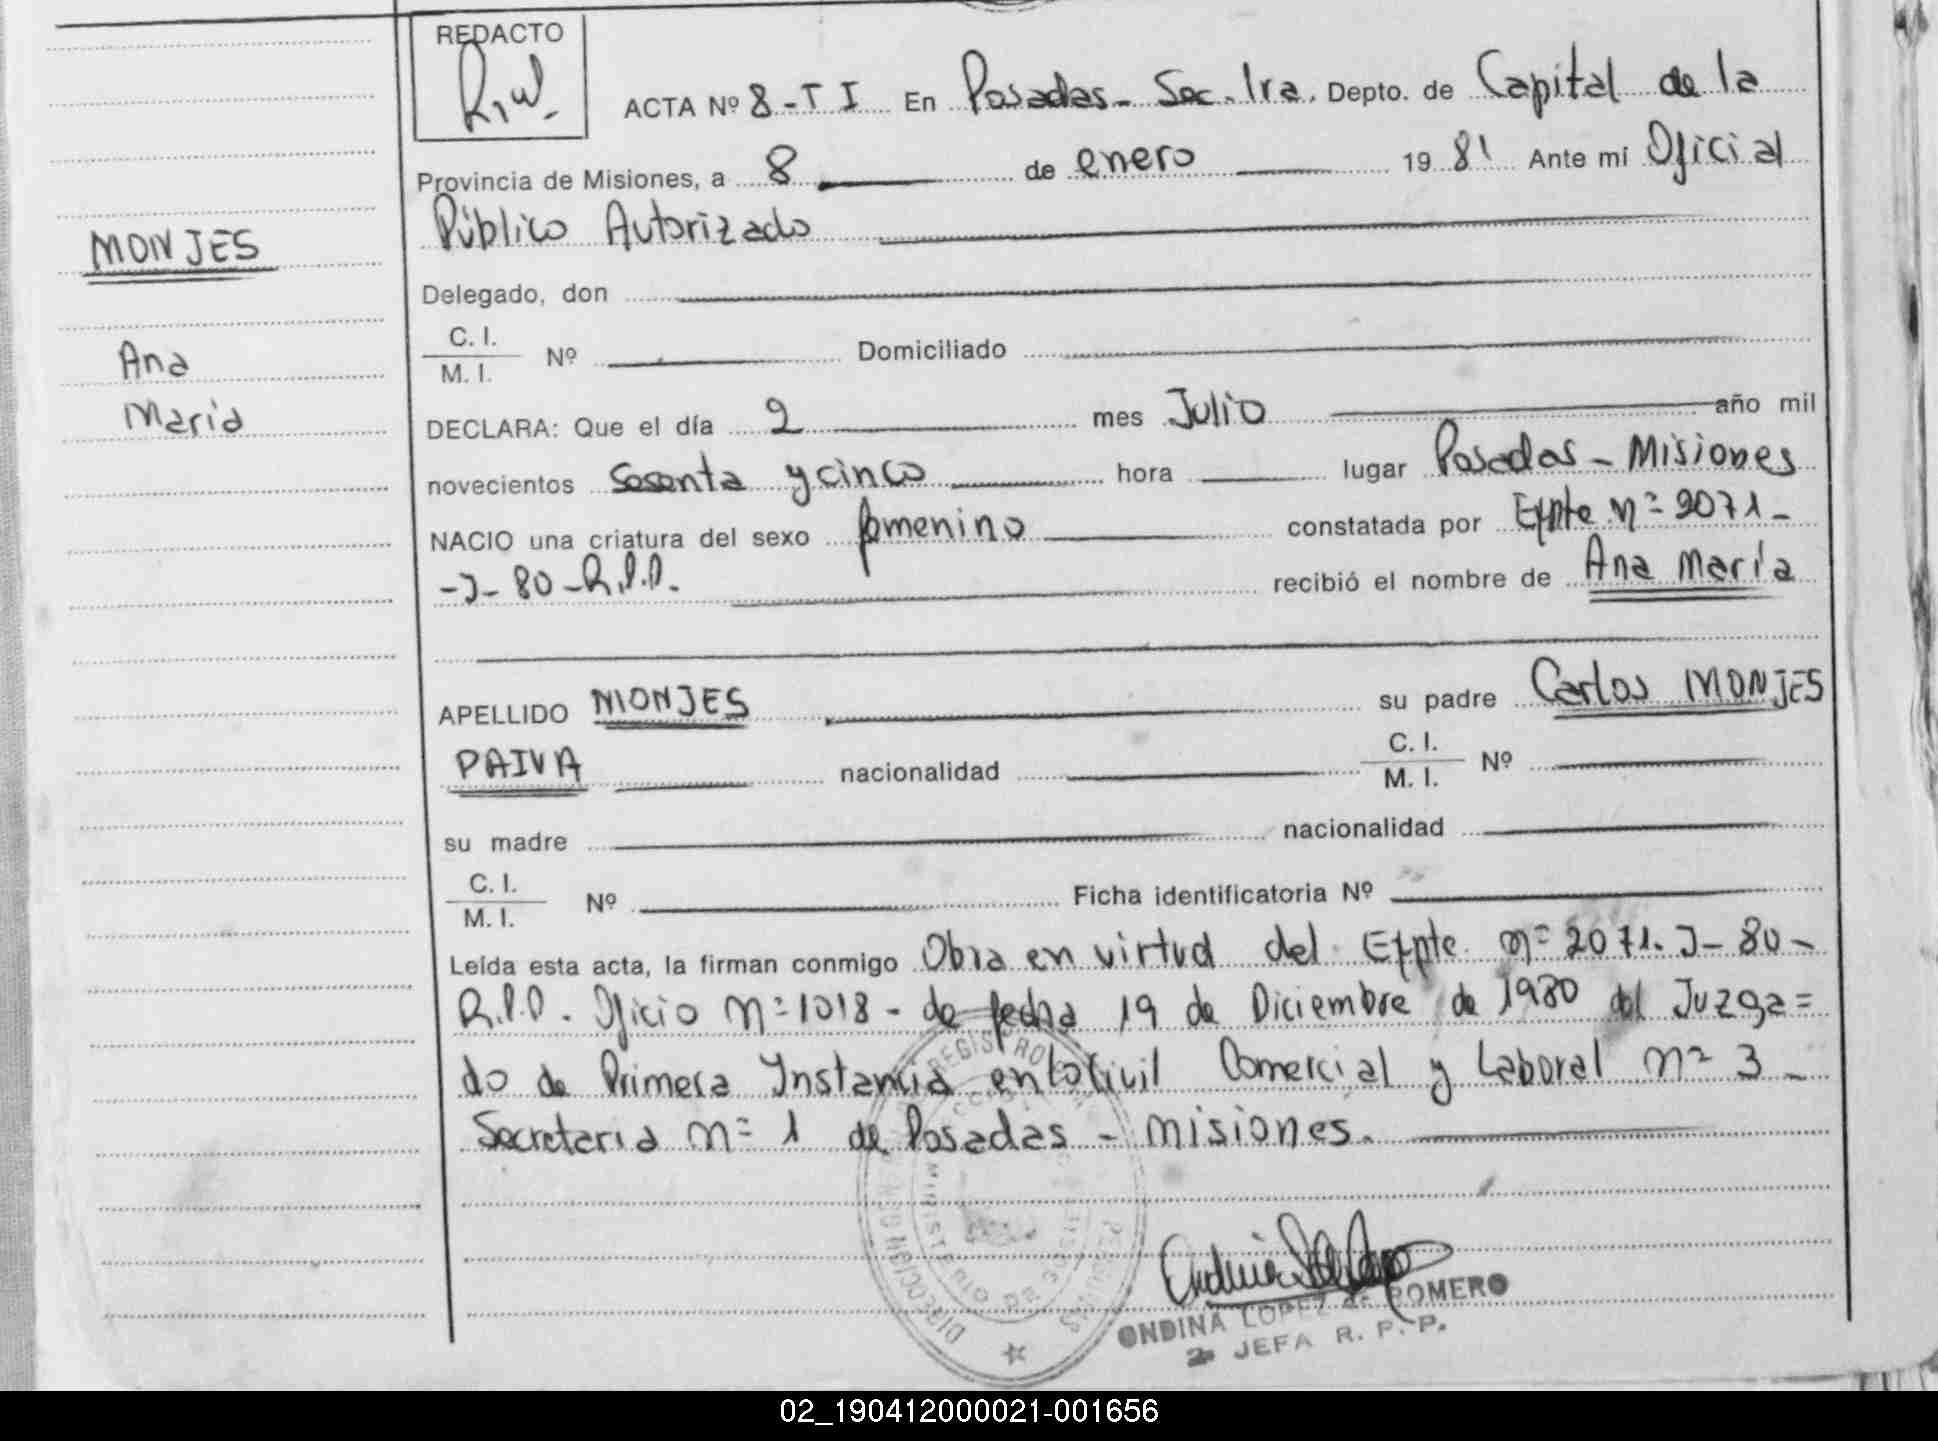 REDACTO
R.W.
ACTA Nº 8-T I En Posadas - Sec. 1ra. Depto. de Capital de la
Provincia de Misiones, a 8 de enero 1981 Ante mí Oficial
Público Autorizado
MONJES
Delegado, don
C. I.
M. I.
Nº Domiciliado
Ana
Maria
DECLARA: Que el día 2 mes Julio año mil
novecientos Sesenta y cinco hora lugar Posadas - Misiones
NACIO una criatura del sexo femenino constatada por Expte nº 2071-
-J- 80 - R.P.P. recibió el nombre de Ana María
APELLIDO MONJES su padre Carlos MONJES
PAIVA nacionalidad C. I.
M. I. Nº
su madre nacionalidad
C. I.
M. I.
Nº Ficha identificatoria Nº
Leída esta acta, la firman conmigo Obra en virtud del Expte. nº 2071. J- 80 -
R.P.P. Oficio Nº 1018 - de fecha 19 de Diciembre de 1980 del Juzga=
do de Primera Instancia en lo Civil Comercial y Laboral nº 3 -
Secretaria nº 1 de Posadas - Misiones.
ONDINA LOPEZ de ROMERO
JEFA R. P. P.
02_190412000021-001656